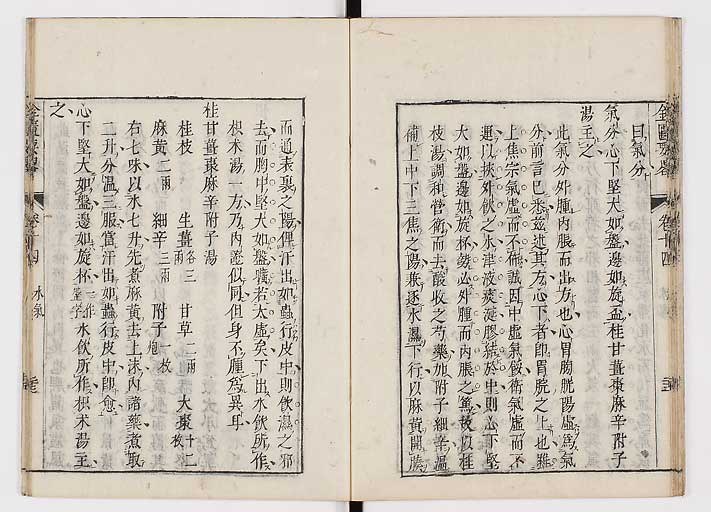 曰氣分
氣分心下堅大如盤邊如旋盃桂甘薑棗麻辛附子
湯主之
此氣分外腫內脹而出方也心胃膀胱陽虛為氣
分前言已悉茲述其方心下者即胃脘之上也雖
上焦宗氣虛而不 誠因中虛氣餒衛氣虛而不
運以挾外飲之水津液凝膠結於中則心下堅
大如盤邊如旋杯 必外腫而內脹之篤 以桂
枝湯調和營衛而去酸收之芍藥加附子細辛溫
備上中下三焦之陽 逐水濕下行以麻黃開腠
而通表裏之陽俾汗出如蟲行皮中則飲濕之邪
去而胸中堅大如盤曠若太虛矣下出水飲所作
枳朮湯一方乃內證似同但身不腫為異耳
桂甘薑棗麻辛附子湯
桂枝 生薑各三兩 甘草二兩 大棗十二枚
麻黃二兩 細辛三兩 附子一枚炮
右七味以水七升先煮麻黃去上沫內諸藥煮取
二升分溫三服當汗出如蟲行皮中即愈
心下堅大如盤邊如旋杯一作盤字水飲所作枳朮湯主
之
金匱要略 卷十四
卷十四 水氣